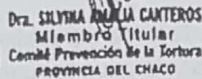 Dra. SILVINA AMALIA CANTEROS
Miembro Titular
Comité Prevención de la Tortora
PROVINCIA DEL CHACO